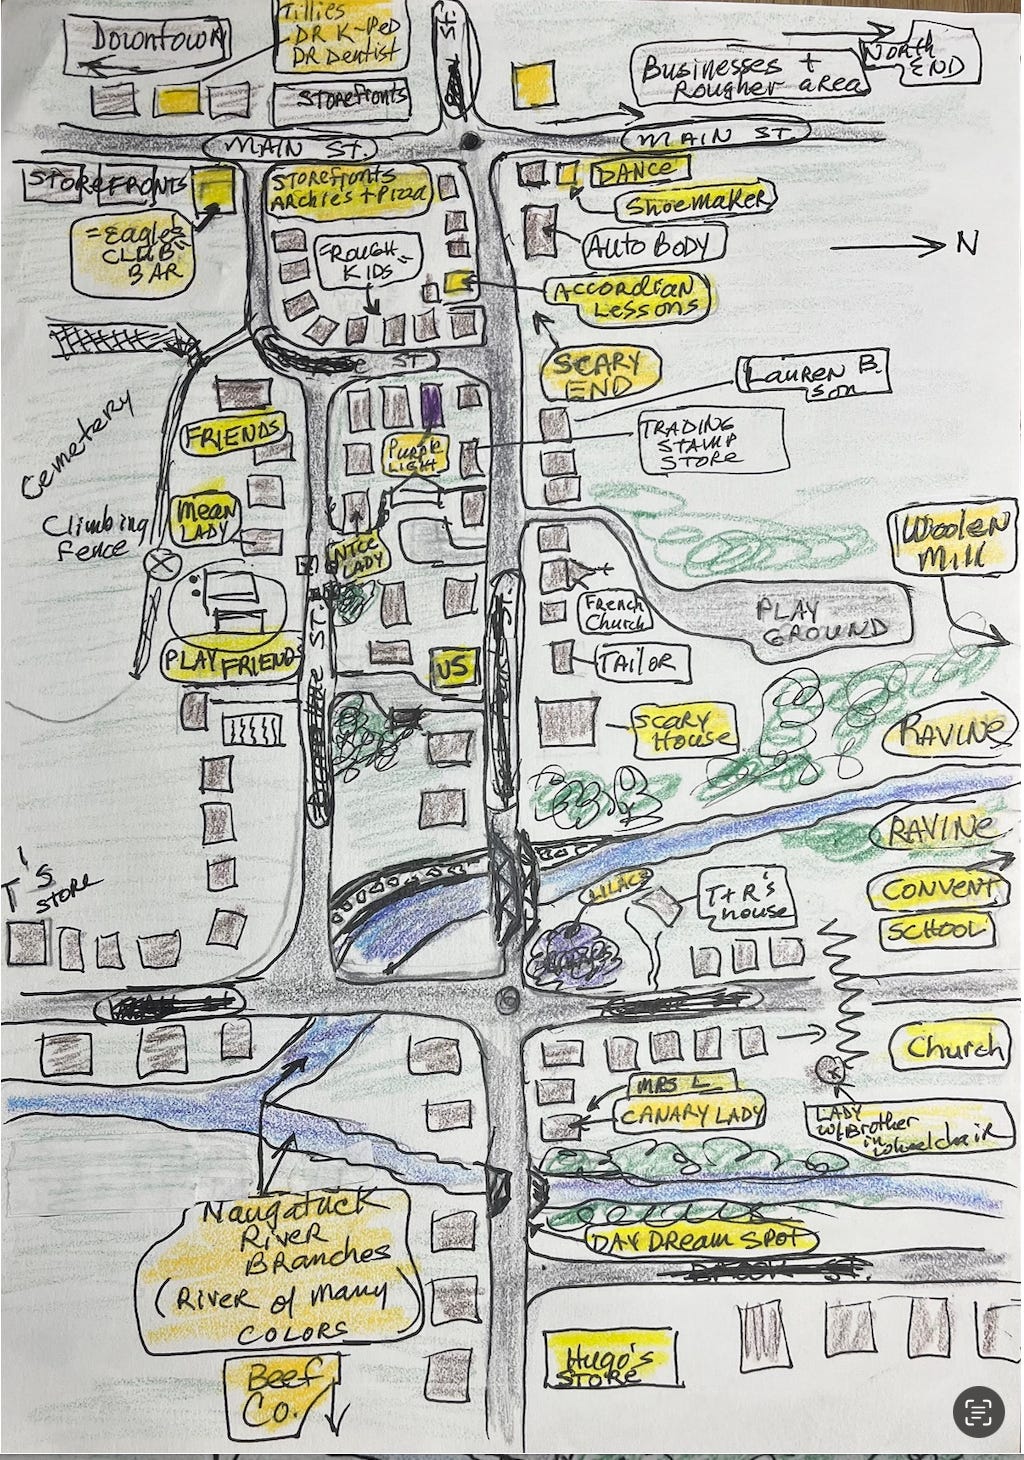 Downtown
Tillies
DR K-Ped
DR Dentist
STOREfronts
ST.
Businesses +
Rougher area
NORTH
END
MAIN ST.
MAIN ST.
STOREFRONTS
STOREfronts
ARchies + Pizza
DANCE
Shoemaker
AUTO BODY
"Eagles
CLUB"
BAR
"ROUGH"
KIDS
N
ACCORDIAN
LESSONS
ST
SCARY
END
LAUREN B.
son
Cemetery
FRIENDS
PURPLE
LIGHT
TRADING
STAMP
STORE
Climbing
fence
MEAN
LADY
NICE
LADY
Woolen
Mill
French
Church
PLAY
GROUND
PLAY FRIENDS
ST.
US
ST.
TAILOR
SCARY
House
RAVINE
RAVINE
T'S
STORE
LILACS
T+R's
house
CONVENT
SCHOOL
Church
MRS L.
CANARY LADY
LADY
W/Brother
in
Wheelchair
Naugatuck
River
BRanches
(River of Many
COLORS
DAY DREAM SPOT
ST.
Beef
Co.
Hugo's
STORE